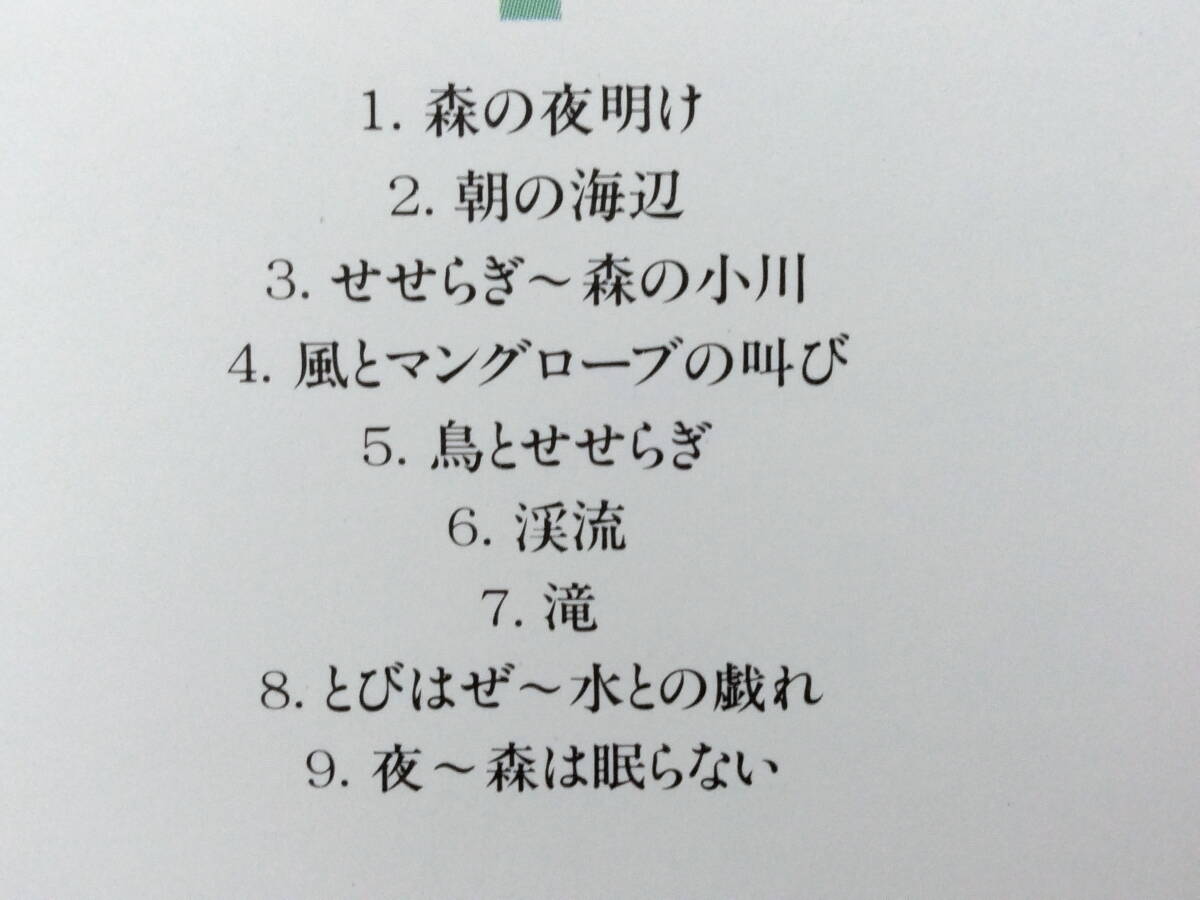 1. 森の夜明け
2. 朝の海辺
3. せせらぎ～森の小川
4. 風とマングローブの叫び
5. 鳥とせせらぎ
6. 渓流
7. 滝
8. とびはぜ～水との戯れ
9. 夜～森は眠らない